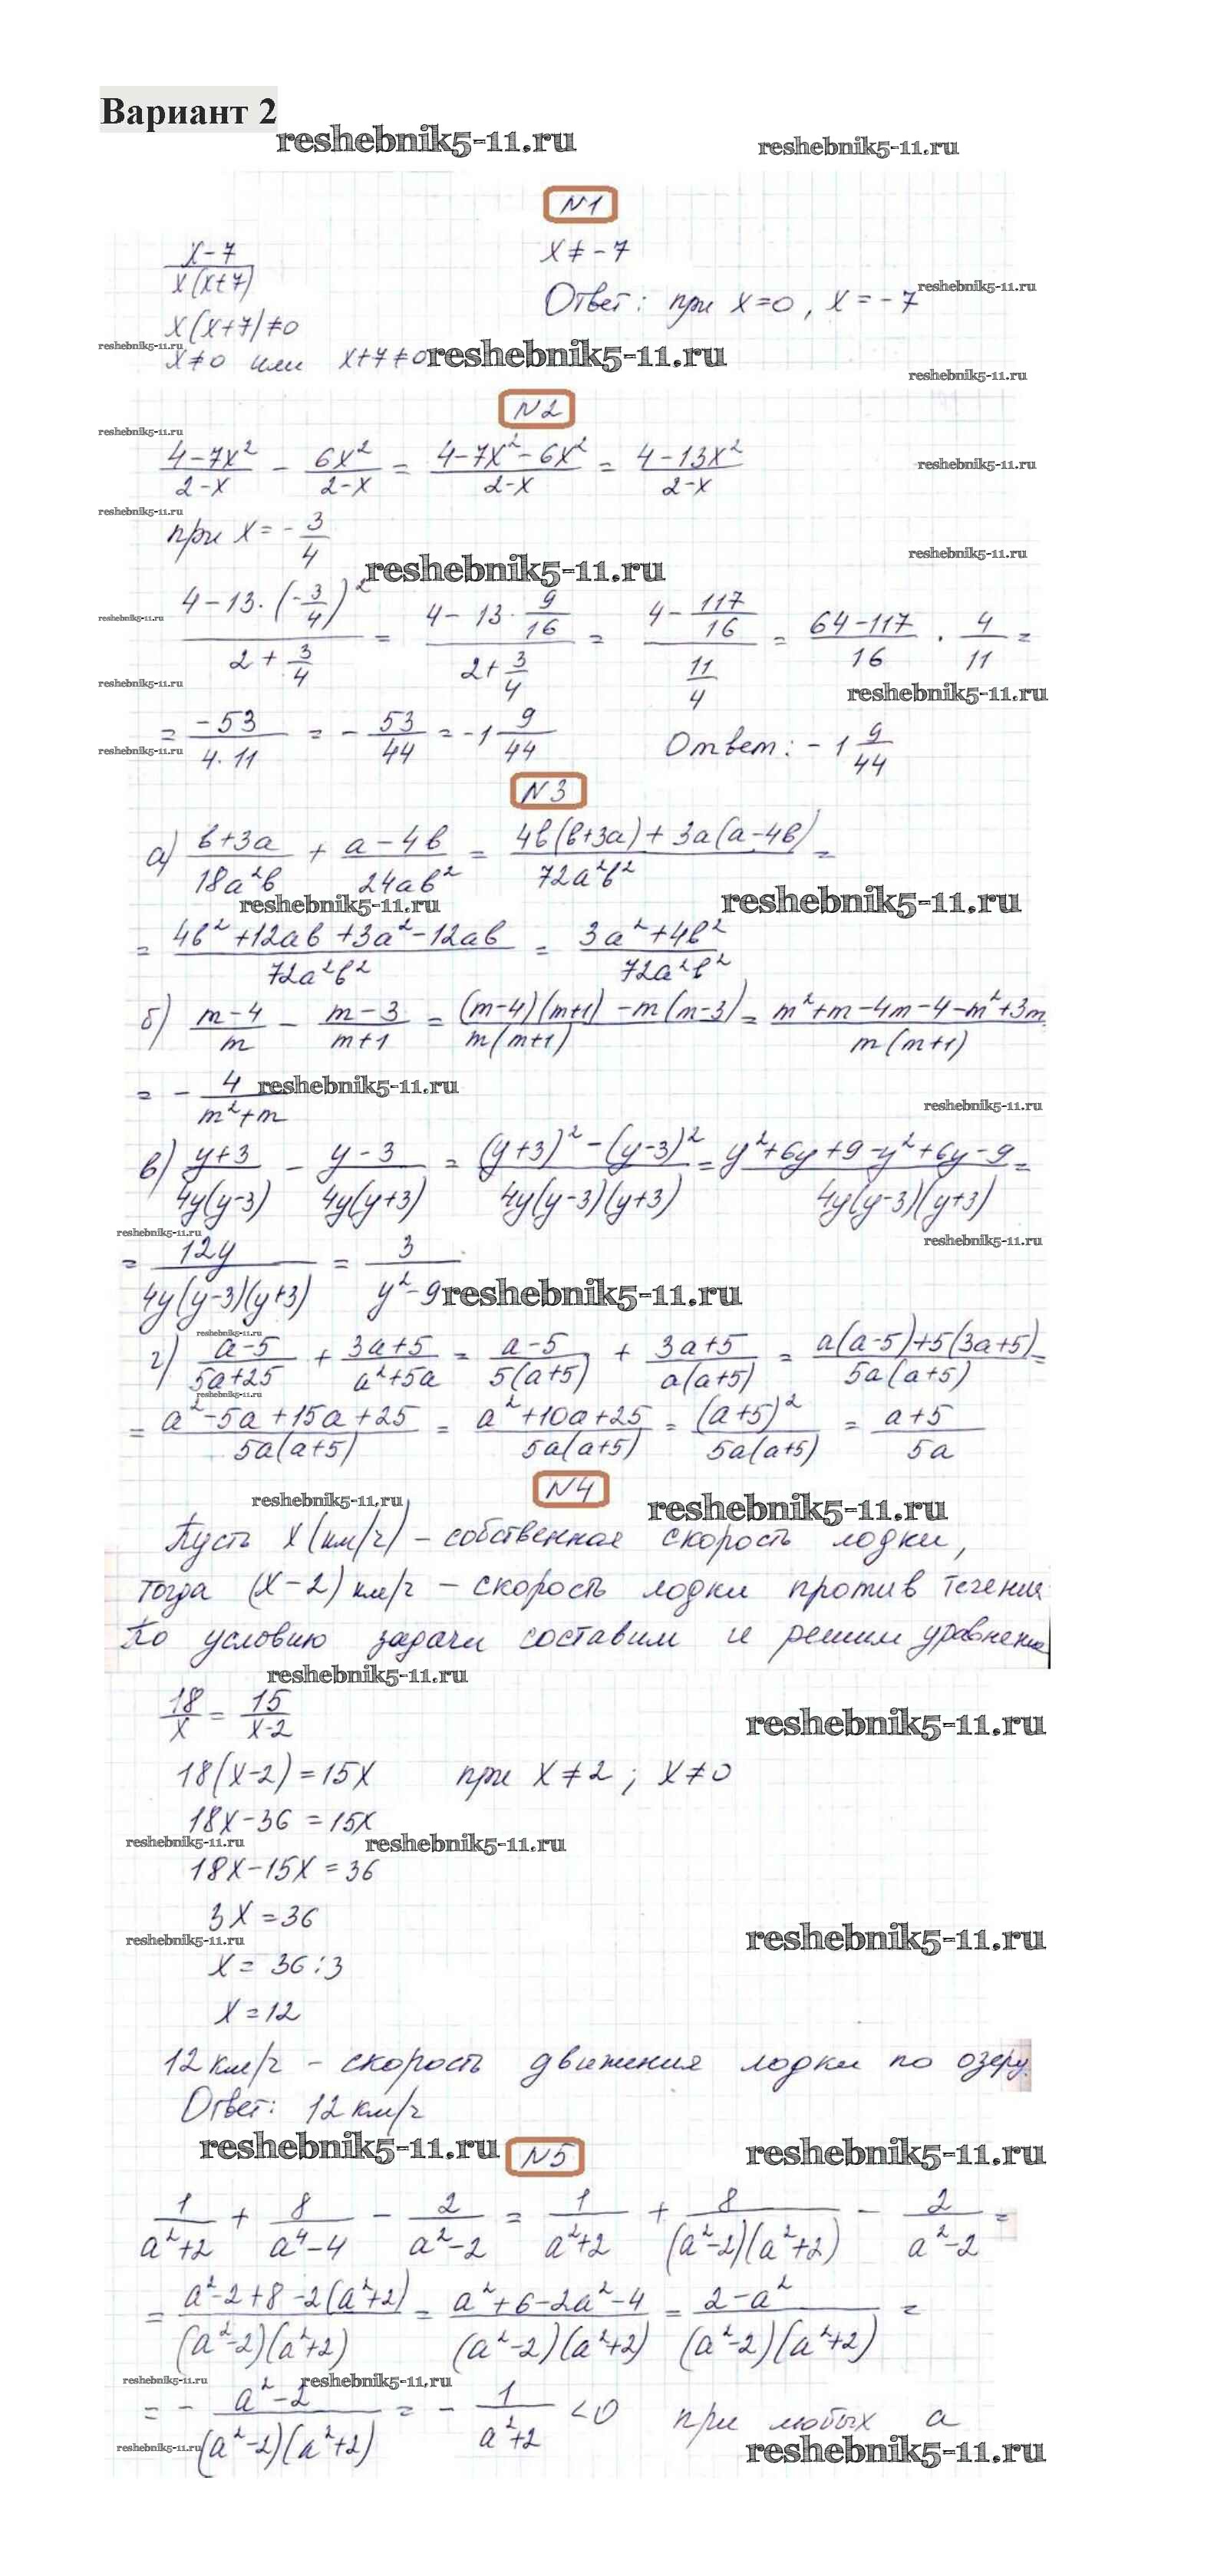 Вариант 2
reshebnik5-11.ru reshebnik5-11.ru
N1
x-7/x(x+7) x≠-7
Ответ: при x=0, x=-7 reshebnik5-11.ru
x(x+7)≠0
reshebnik5-11.ru
x≠0 или x+7≠0 reshebnik5-11.ru
reshebnik5-11.ru
N2
reshebnik5-11.ru
(4-7x²)/(2-x) - 6x²/(2-x) = (4-7x²-6x²)/(2-x) = (4-13x²)/(2-x) reshebnik5-11.ru
reshebnik5-11.ru
при x=-3/4 reshebnik5-11.ru
reshebnik5-11.ru
reshebnik5-11.ru (4-13·(-3/4)²)/(2+3/4) = (4-13·9/16)/(2+3/4) = (4-117/16)/(11/4) = (64-117)/16 · 4/11 =
reshebnik5-11.ru reshebnik5-11.ru
= -53/(4·11) = -53/44 = -1 9/44 Ответ: -1 9/44
reshebnik5-11.ru
N3
а) (b+3a)/18a²b + (a-4b)/24ab² = (4b(b+3a)+3a(a-4b))/72a²b² =
reshebnik5-11.ru reshebnik5-11.ru
= (4b²+12ab+3a²-12ab)/72a²b² = (3a²+4b²)/72a²b²
б) (m-4)/m - (m-3)/(m+1) = ((m-4)(m+1)-m(m-3))/m(m+1) = (m²+m-4m-4-m²+3m)/m(m+1)
= -4/(m²+m) reshebnik5-11.ru
reshebnik5-11.ru
в) (y+3)/4y(y-3) - (y-3)/4y(y+3) = ((y+3)²-(y-3)²)/4y(y-3)(y+3) = (y²+6y+9-y²+6y-9)/4y(y-3)(y+3) =
reshebnik5-11.ru reshebnik5-11.ru
= 12y/4y(y-3)(y+3) = 3/(y²-9) reshebnik5-11.ru
reshebnik5-11.ru
г) (a-5)/(5a+25) + (3a+5)/(a²+5a) = (a-5)/5(a+5) + (3a+5)/a(a+5) = (a(a-5)+5(3a+5))/5a(a+5) =
reshebnik5-11.ru
= (a²-5a+15a+25)/5a(a+5) = (a²+10a+25)/5a(a+5) = (a+5)²/5a(a+5) = (a+5)/5a
N4
reshebnik5-11.ru reshebnik5-11.ru
Пусть x(км/ч) - собственная скорость лодки,
тогда (x-2) км/ч - скорость лодки против течения
По условию задачи составим и решим уравнение
reshebnik5-11.ru
18/x = 15/(x-2) reshebnik5-11.ru
18(x-2)=15x при x≠2; x≠0
18x-36=15x
reshebnik5-11.ru reshebnik5-11.ru
18x-15x=36
3x=36
reshebnik5-11.ru reshebnik5-11.ru
x=36:3
x=12
12 км/ч - скорость движения лодки по озеру.
Ответ: 12 км/ч
reshebnik5-11.ru N5 reshebnik5-11.ru
1/(a²+2) + 8/(a⁴-4) - 2/(a²-2) = 1/(a²+2) + 8/(a²-2)(a²+2) - 2/(a²-2) =
= (a²-2+8-2(a²+2))/(a²-2)(a²+2) = (a²+6-2a²-4)/(a²-2)(a²+2) = (2-a²)/(a²-2)(a²+2) =
reshebnik5-11.ru reshebnik5-11.ru
= -(a²-2)/(a²-2)(a²+2) = -1/(a²+2) <0 при любых a
reshebnik5-11.ru reshebnik5-11.ru